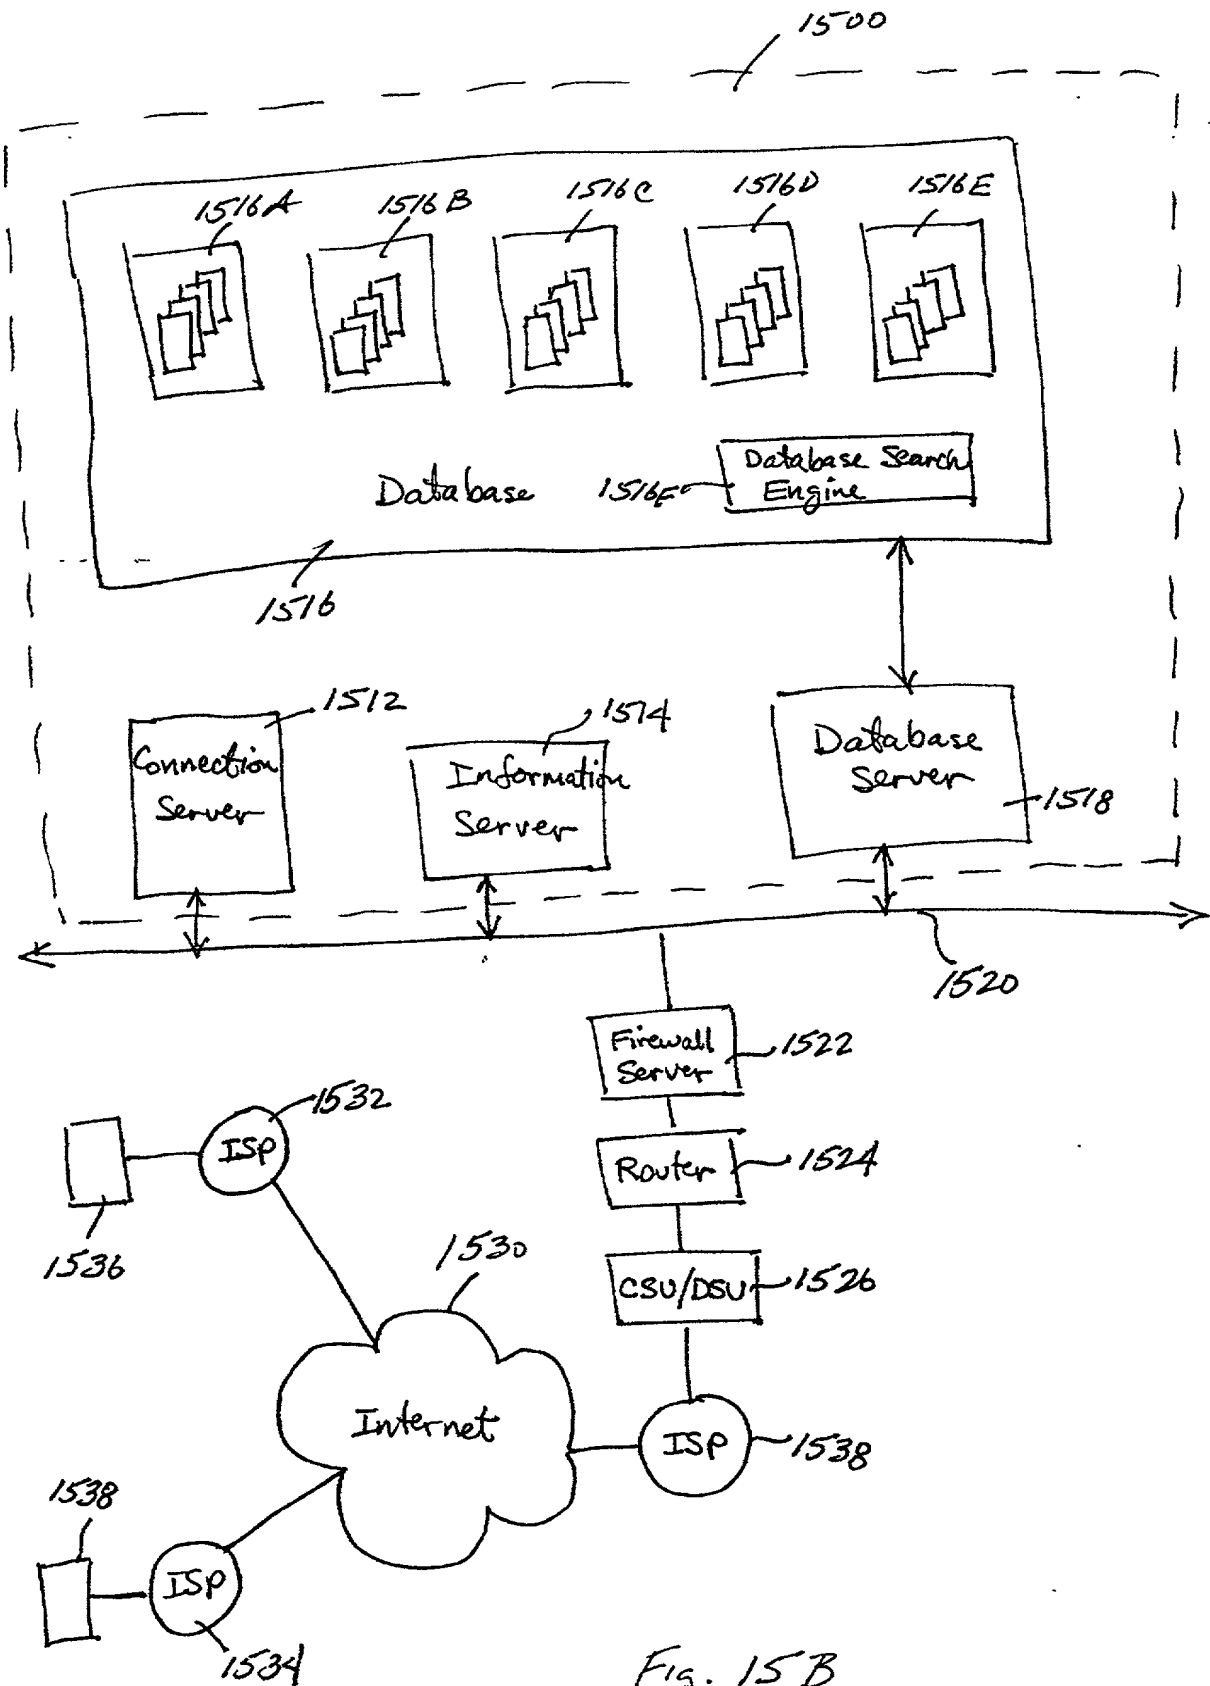 1500
1516A
1516B
1516C
1516D
1516E
Database
1516F
Database Search
Engine
1516
1512
Connection
Server
1514
Information
Server
Database
Server
1518
1520
Firewall
Server
1522
1532
ISP
Router
1524
1536
1530
CSU/DSU
1526
Internet
ISP
1538
1538
ISP
1534
Fig. 15B